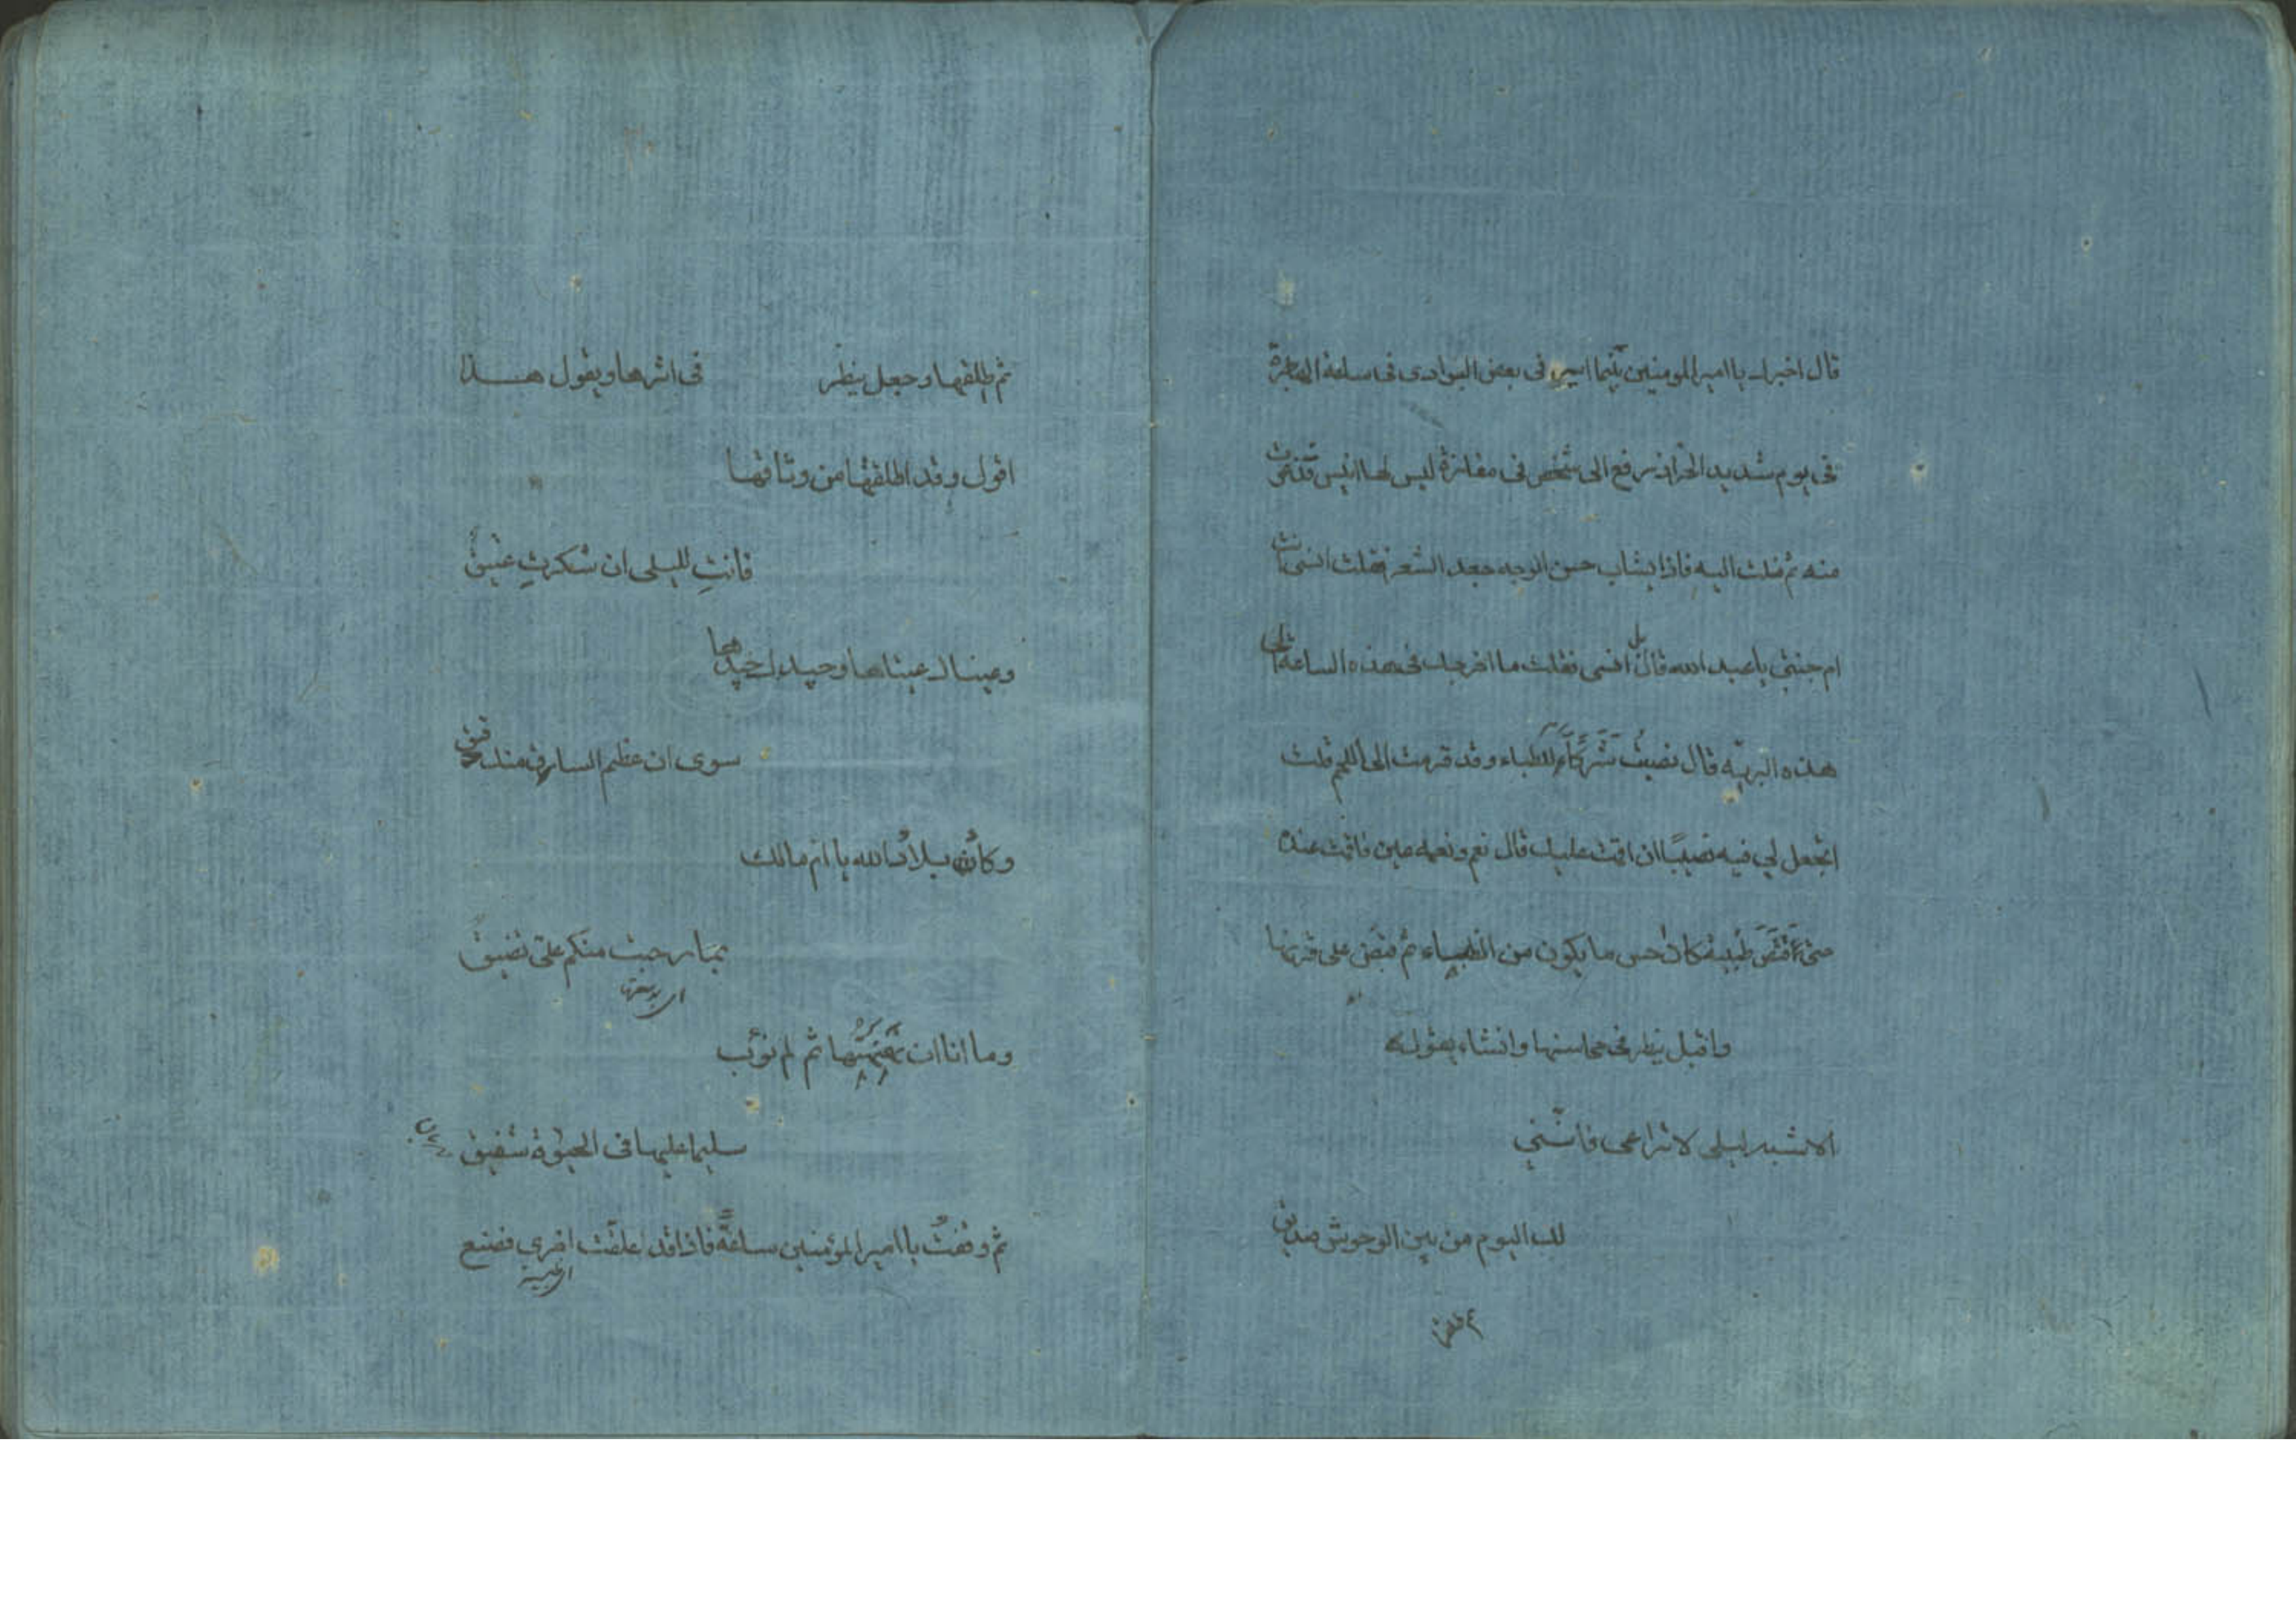 قال اخبرك يا امير المومنين بينما اسير فى بعض البوادى فى ساعة الهاجرة
فى يوم شديد الحر اذ رفع الى شخص فى مفازة ليس لها انيس فدنوت
منه ثم ملت اليه فاذا بشاب حسن الوجه جعد الشعر فقلت انسى انت
ام جنى يا عبد الله قال بل انسى فقلت ما اخرجك فى هذه الساعة الى
هذه البريه قال نصبت شركا للظباء وقد قرمت الى اللحم قلت
اتجعل لى فيه نصيبا ان اقمت عليك قال نعم ونعمه عين فاقمت عنده
حتى اقتنص ظبية كاحسن ما يكون من الظباء ثم قبض على قرنها
واقبل ينظر فى محاسنها وانشاء يقول
الا شبه ليلى لا تراعى فاننى
لك اليوم من بين الوحوش صديق
ثم اطلقها وجعل ينظر فى اثرها ويقول هذا
اقول وقد اطلقتها من وثاقها
فانتِ لليلى ان شكرتِ عتيقُ
وعيناك عيناها وجيدك جيدها
سوى ان عظم الساق منك دقيق
وكادت بلادُ الله يا ام مالك
بما رحبت منكم علىّ تضيقُ
وما انا ان شبهتها ثم لم تؤب
سليما عليها فى الحيوة شفيق
ثم وقفتُ يا امير المؤمنين ساعةً فاذا قد اعلقت اخرى فصنع